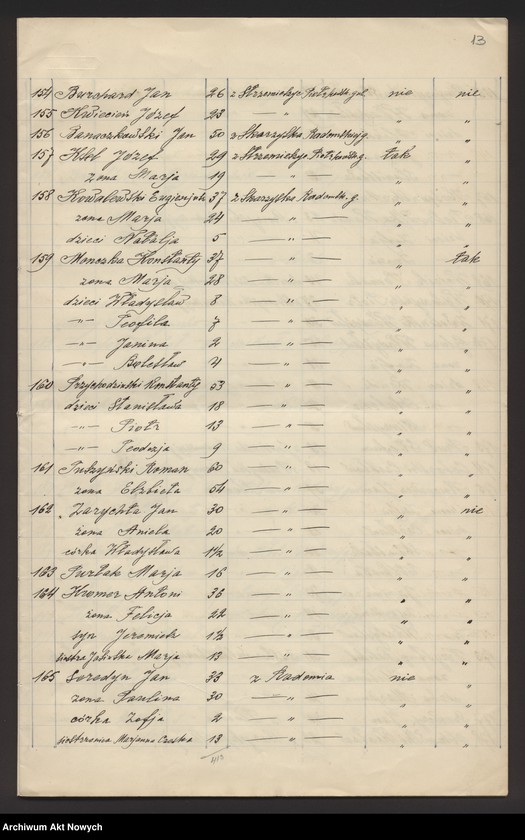 13
154 Burchard Jan 26 z Strzemieszyc nie nie
155 Kwiecień Józef 23 — " — " "
156 Banaszkowski Jan 30 z Skarżyska " "
157 Kśbl Józef 29 z Strzemieszyc tak "
żona Marja 19 — " — " "
158 Kowalewski Eugienjusz 37 z Skarżyska Radomsk. g. " "
żona Marja 24 — " — " "
dzieci Natalja 5 — " — " "
159 Moneszka Konstanty 37 — " — " tak
żona Marja 28 — " — " "
dzieci Władysław 8 — " — " "
— " — Teofila 7 — " — " "
— " — Janina 2 — " — " "
— " — Bolesław 4 — " — " "
160 Przychodziński Konstanty 53 — " — " "
dzieci Stanisława 18 — " — " "
— " — Piotr 13 — " — " "
— " — Teodozja 9 — " — " "
161 Puszyński Roman 60 — " — " "
żona Elżbieta 54 — " — " "
162 Zarychta Jan 30 — " — " nie
żona Aniela 20 — " — " "
córka Władysława 1½ — " — " "
163 Turlak Marja 16 — " — " "
164 Kromer Antoni 36 — " — " "
żona Felicja 22 — " — " "
syn 1½ — " — " "
siostra Marja 13 — " — " "
165 Seredyn Jan 33 z Radomia nie "
żona Paulina 30 — " — " "
córka Zofja 2 — " — " "
siostrzenica Marjanna 13 — " — " "
Archiwum Akt Nowych